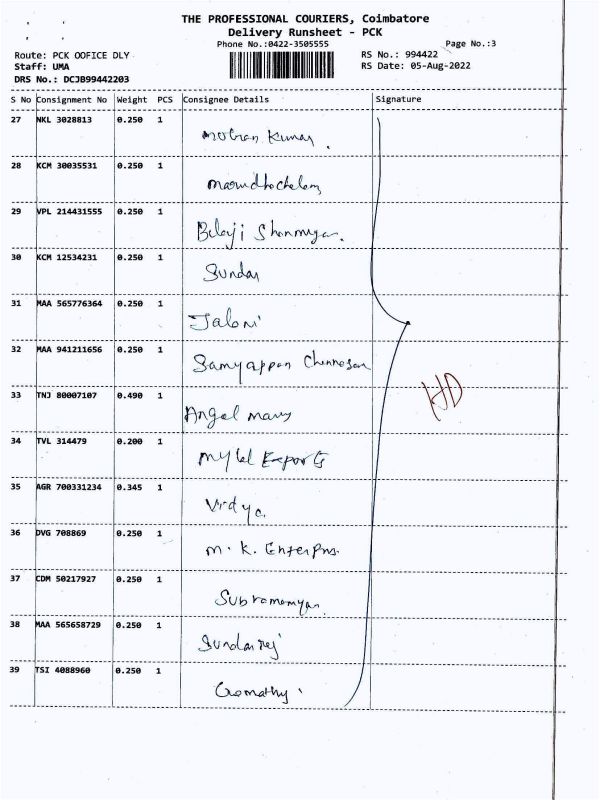 THE PROFESSIONAL COURIERS, Coimbatore
Delivery Runsheet - PCK
Phone No.:0422-3505555
Page No.:3
Route: PCK OOFICE DLY
RS No.: 994422
Staff: UMA
RS Date: 05-Aug-2022
DRS No.: DCJB99442203
S No Consignment No Weight PCS Consignee Details Signature
27 NKL 3028813 0.250 1 Mohan Kumar.
28 KCM 30035531 0.250 1
29 VPL 214431555 0.250 1 Balaji Shanmugan.
30 KCM 12534231 0.250 1 Sundar
31 MAA 565776364 0.250 1
32 MAA 941211656 0.250 1 Samyappan
33 TNJ 80007107 0.490 1 Angel mary
HD
34 TVL 314479 0.200 1 Exports
35 AGR 700331234 0.345 1 Vidya
36 DVG 708869 0.250 1 M. K. Enterprs.
37 CDM 50217927 0.250 1 Subramanyan
38 MAA 565658729 0.250 1 Sundarraj
39 TSI 4088960 0.250 1 Gomathy.